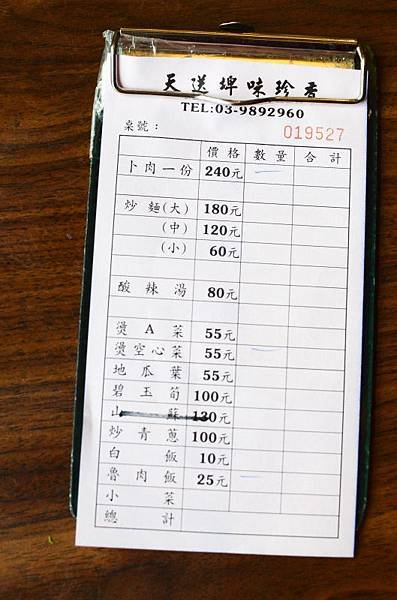 天送埤味珍香
TEL:03-9892960
桌號： 019527
價格 數量 合計
卜肉一份 240元 一
炒麵(大) 180元
(中) 120元
(小) 60元
酸辣湯 80元
燙A菜 55元
燙空心菜 55元 一
地瓜葉 55元
碧玉筍 100元
山蘇 130元
炒青蔥 100元
白飯 10元
魯肉飯 25元 一
小菜
總計